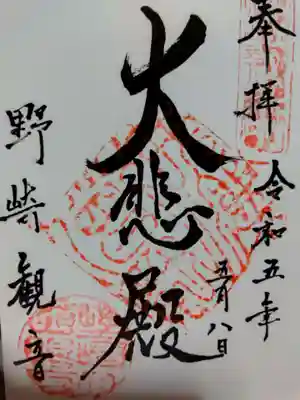 奉拝
令和五年
五月八日
大悲殿
野崎観音